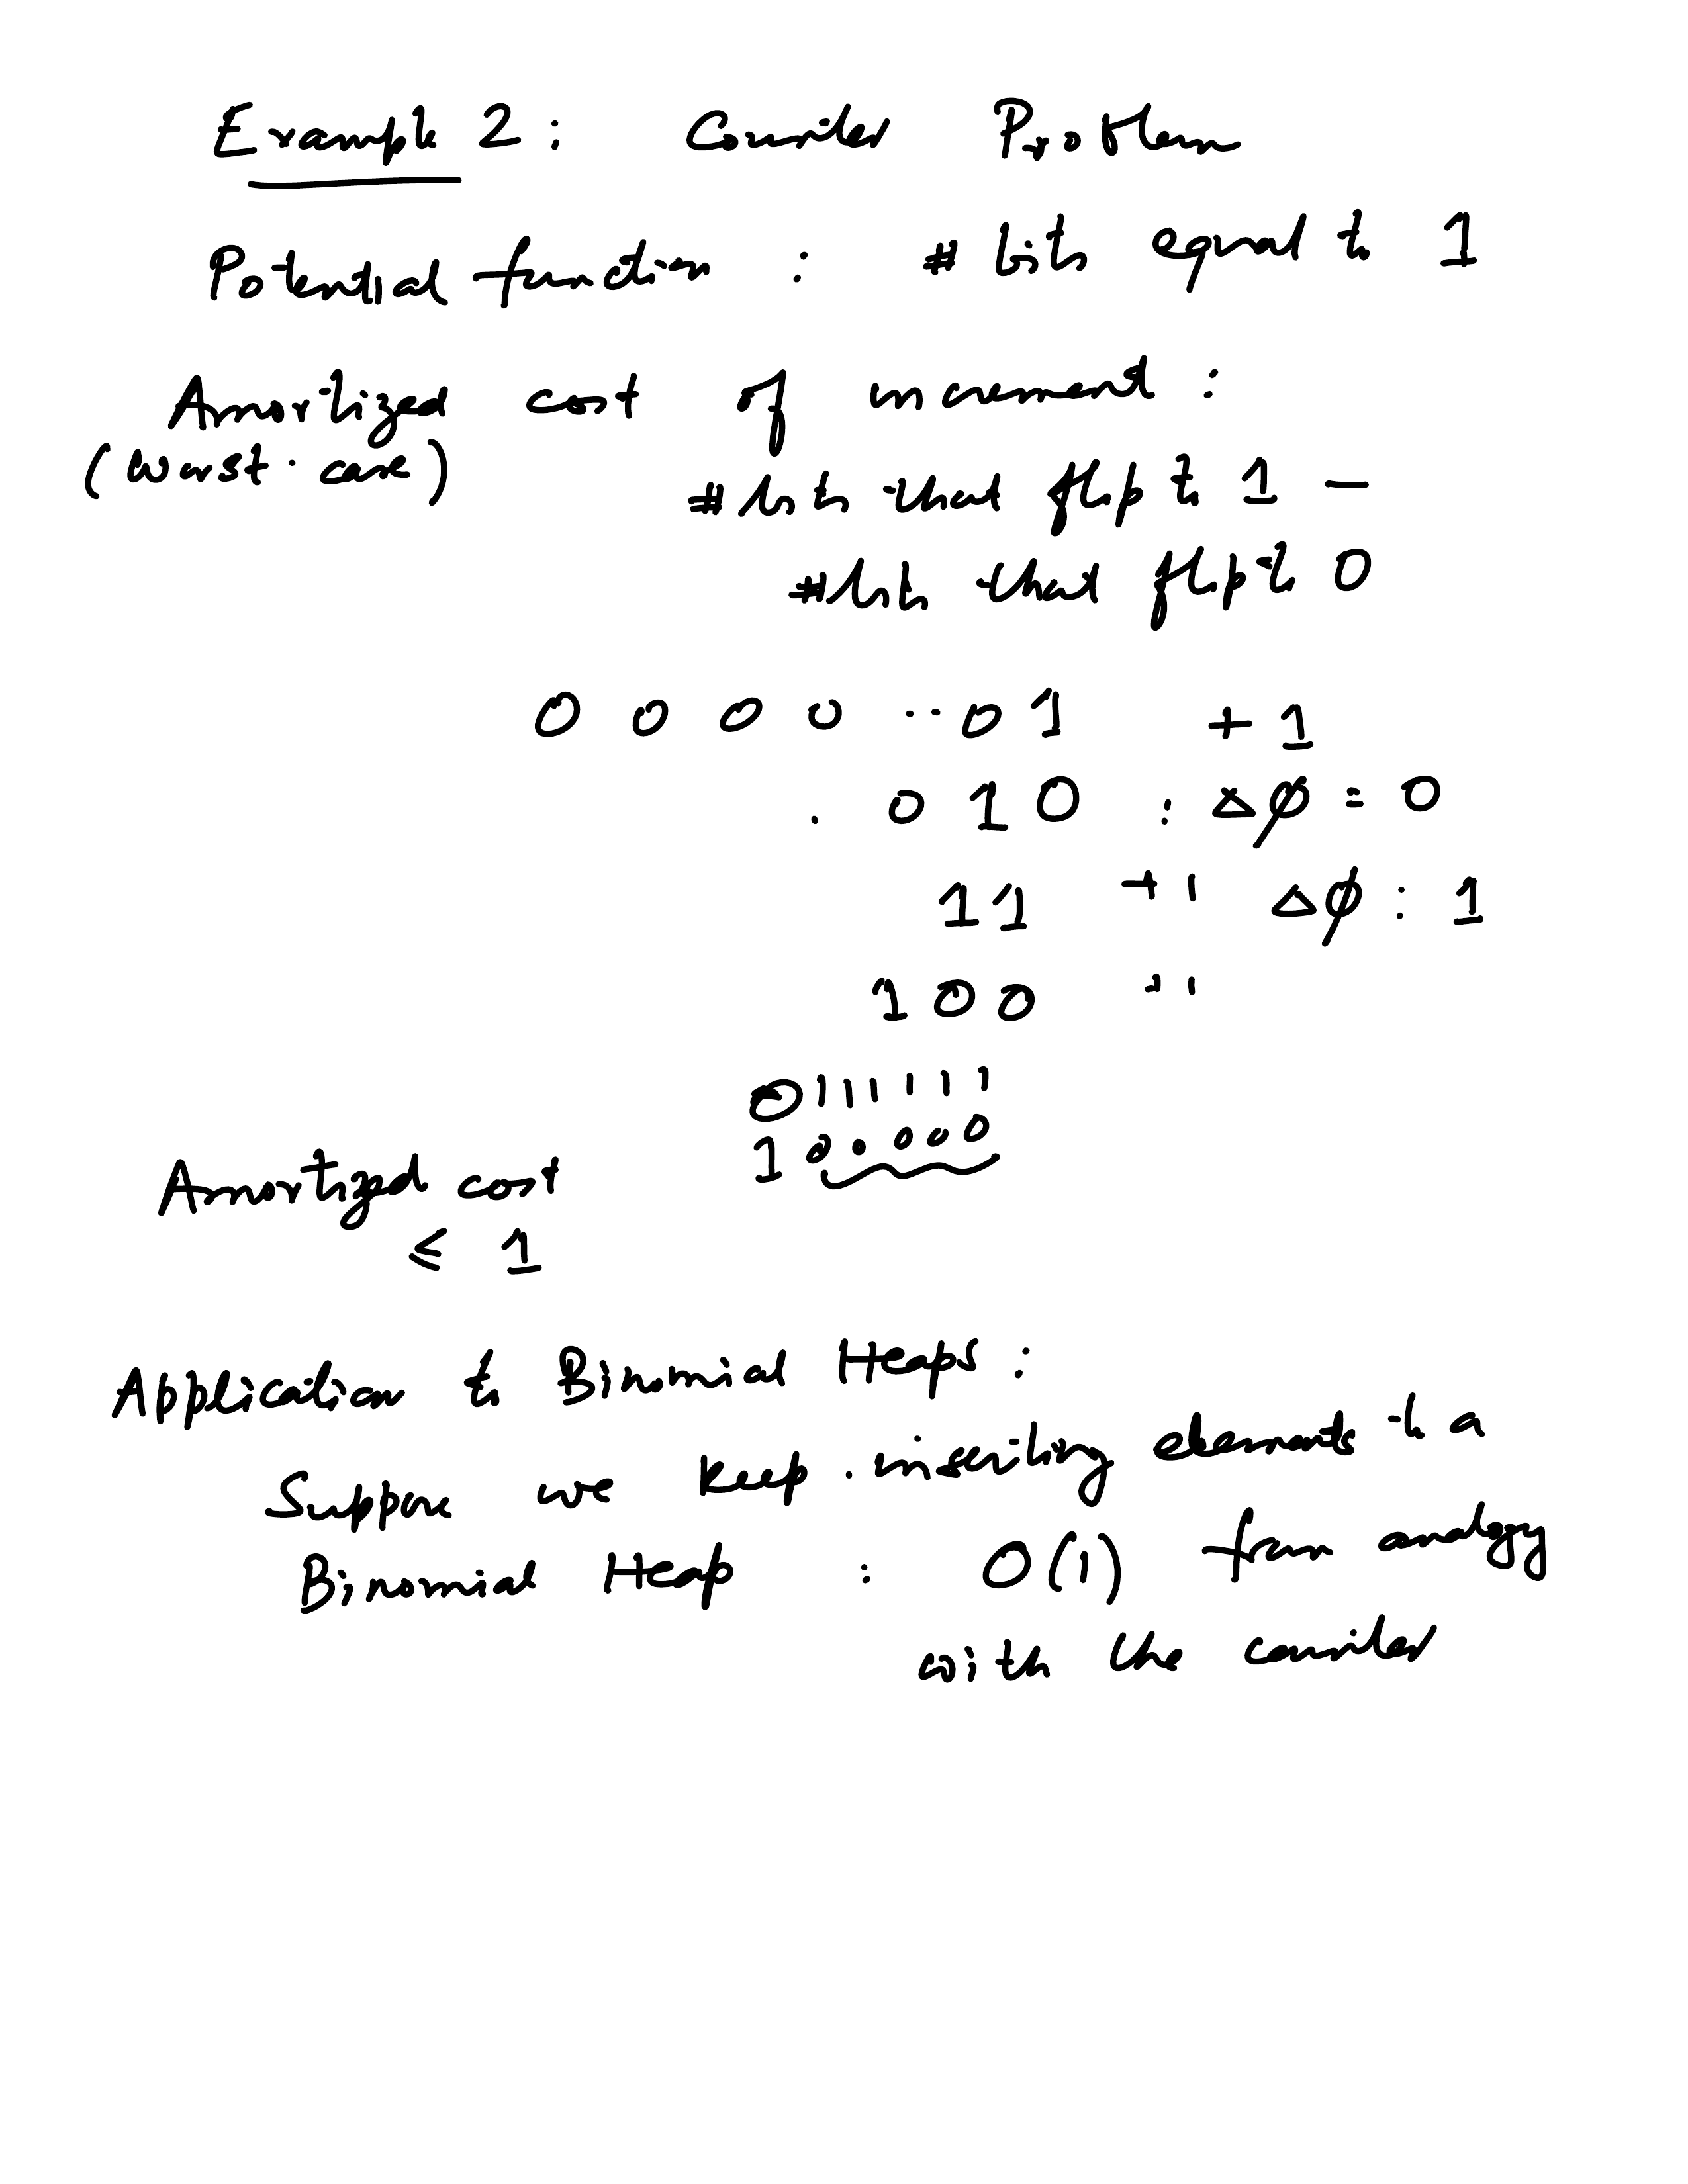 Example 2 : Counter Problem
Potential function : # bits equal to 1
Amortized cost of increment :
(worst-case)
# bits that flip to 1 -
# bits that flip to 0
0 0 0 0 .. 0 1 + 1
. 0 1 0 : Δφ = 0
1 1 + 1 Δφ : 1
1 0 0
0 1 1 1 1 1 1
1 0 0 0 0 0
Amortized cost
≤ 1
Application to Binomial Heaps :
Suppose we keep inserting elements to a
Binomial Heap : O(1) from analogy
with the counter